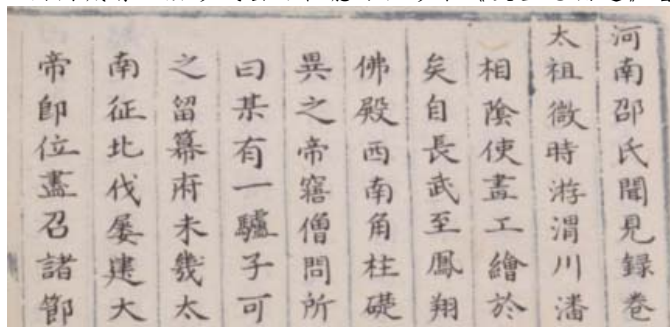 河南邵氏聞見錄卷
太祖微時游渭川潘
相陰使畫工繪於
矣自長武至鳳翔
佛殿西南角柱礎
異之帝寤僧問所
曰某有一驢子可
之留幕府未幾太
南征北伐屡建大
帝即位盡召諸節